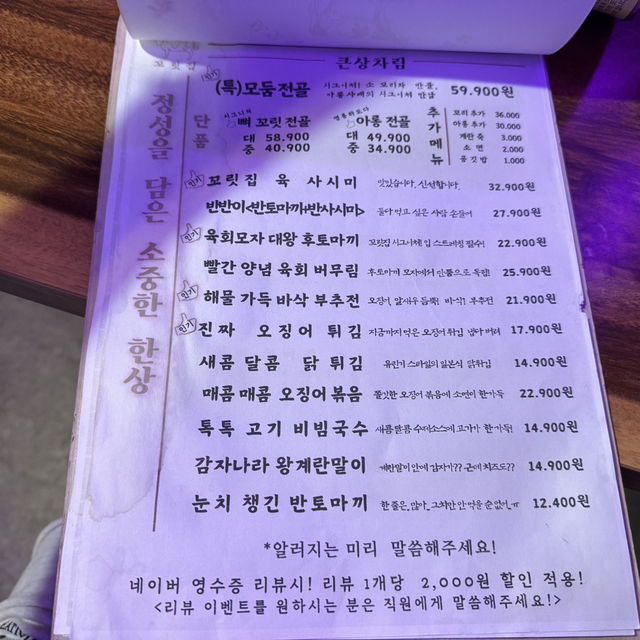 꼬릿집
정성을 담은 소중한 한상
큰상차림
인기
(특)모둠전골 시그니처! 소 꼬리와 반골, 아롱사태의 시그니처 한상 59.900원
단품
시그니처
뼈 꼬릿 전골
대 58.900
중 40.900
아롱 전골
대 49.900
중 34.900
추가메뉴
꼬리 추가 36.000
아롱 추가 30.000
계란 죽 3.000
소 면 2.000
공깃밥 1.000
인기
꼬릿집 육 사시미 맛있습니다, 신선합니다. 32.900원
반반이<반토마끼+반사시미> 둘다 먹고 싶은 사람 손들어 27.900원
인기
육회모자 대왕 후토마끼 꼬릿집 시그니처 입 스트레칭 필수! 22.900원
빨간 양념 육회 버무림 후토마끼 모자에서 단품으로 독립! 25.900원
인기
해물 가득 바삭 부추전 오징어, 알새우 듬뿍! 바삭! 부추전 21.900원
인기
진짜 오징어 튀김 지금까지 먹은 오징어 튀김 냅다 버려 17.900원
새콤 달콤 닭 튀김 유린기 스타일의 일본식 닭튀김 14.900원
매콤매콤 오징어볶음 쫄깃한 오징어 볶음에 소면이 한가득 22.900원
톡톡 고기 비빔국수 새콤달콤 수제소스에 고기가 한가득! 14.900원
감자나라 왕계란말이 계란말이 안에 감자가?? 근데 치즈도?? 14.900원
눈치 챙긴 반토마끼 한 줄은, 많아, 그치만 안 먹을 순 없어.. ㅠ 12.400원
*알러지는 미리 말씀해주세요!
네이버 영수증 리뷰시! 리뷰 1개당 2,000원 할인 적용!
<리뷰 이벤트를 원하시는 분은 직원에게 말씀해주세요!>